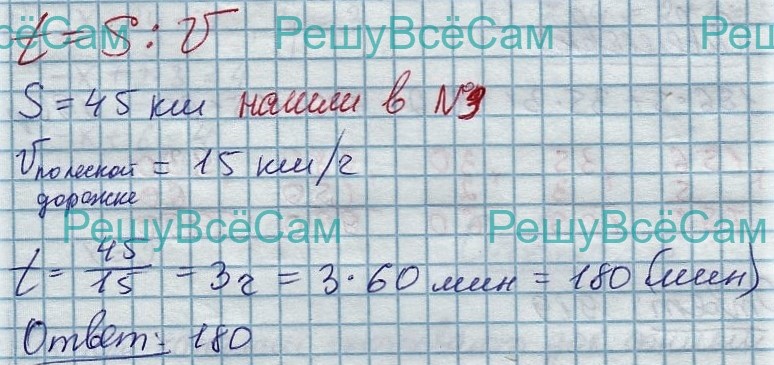 t = S : V
РешуВсёСам РешуВсёСам Решу
S = 45 км нашли в №3
Vпо лесной дорожке = 15 км/ч
РешуВсёСам РешуВсёСам
t = 45/15 = 3ч = 3·60 мин = 180 (мин)
Ответ: 180